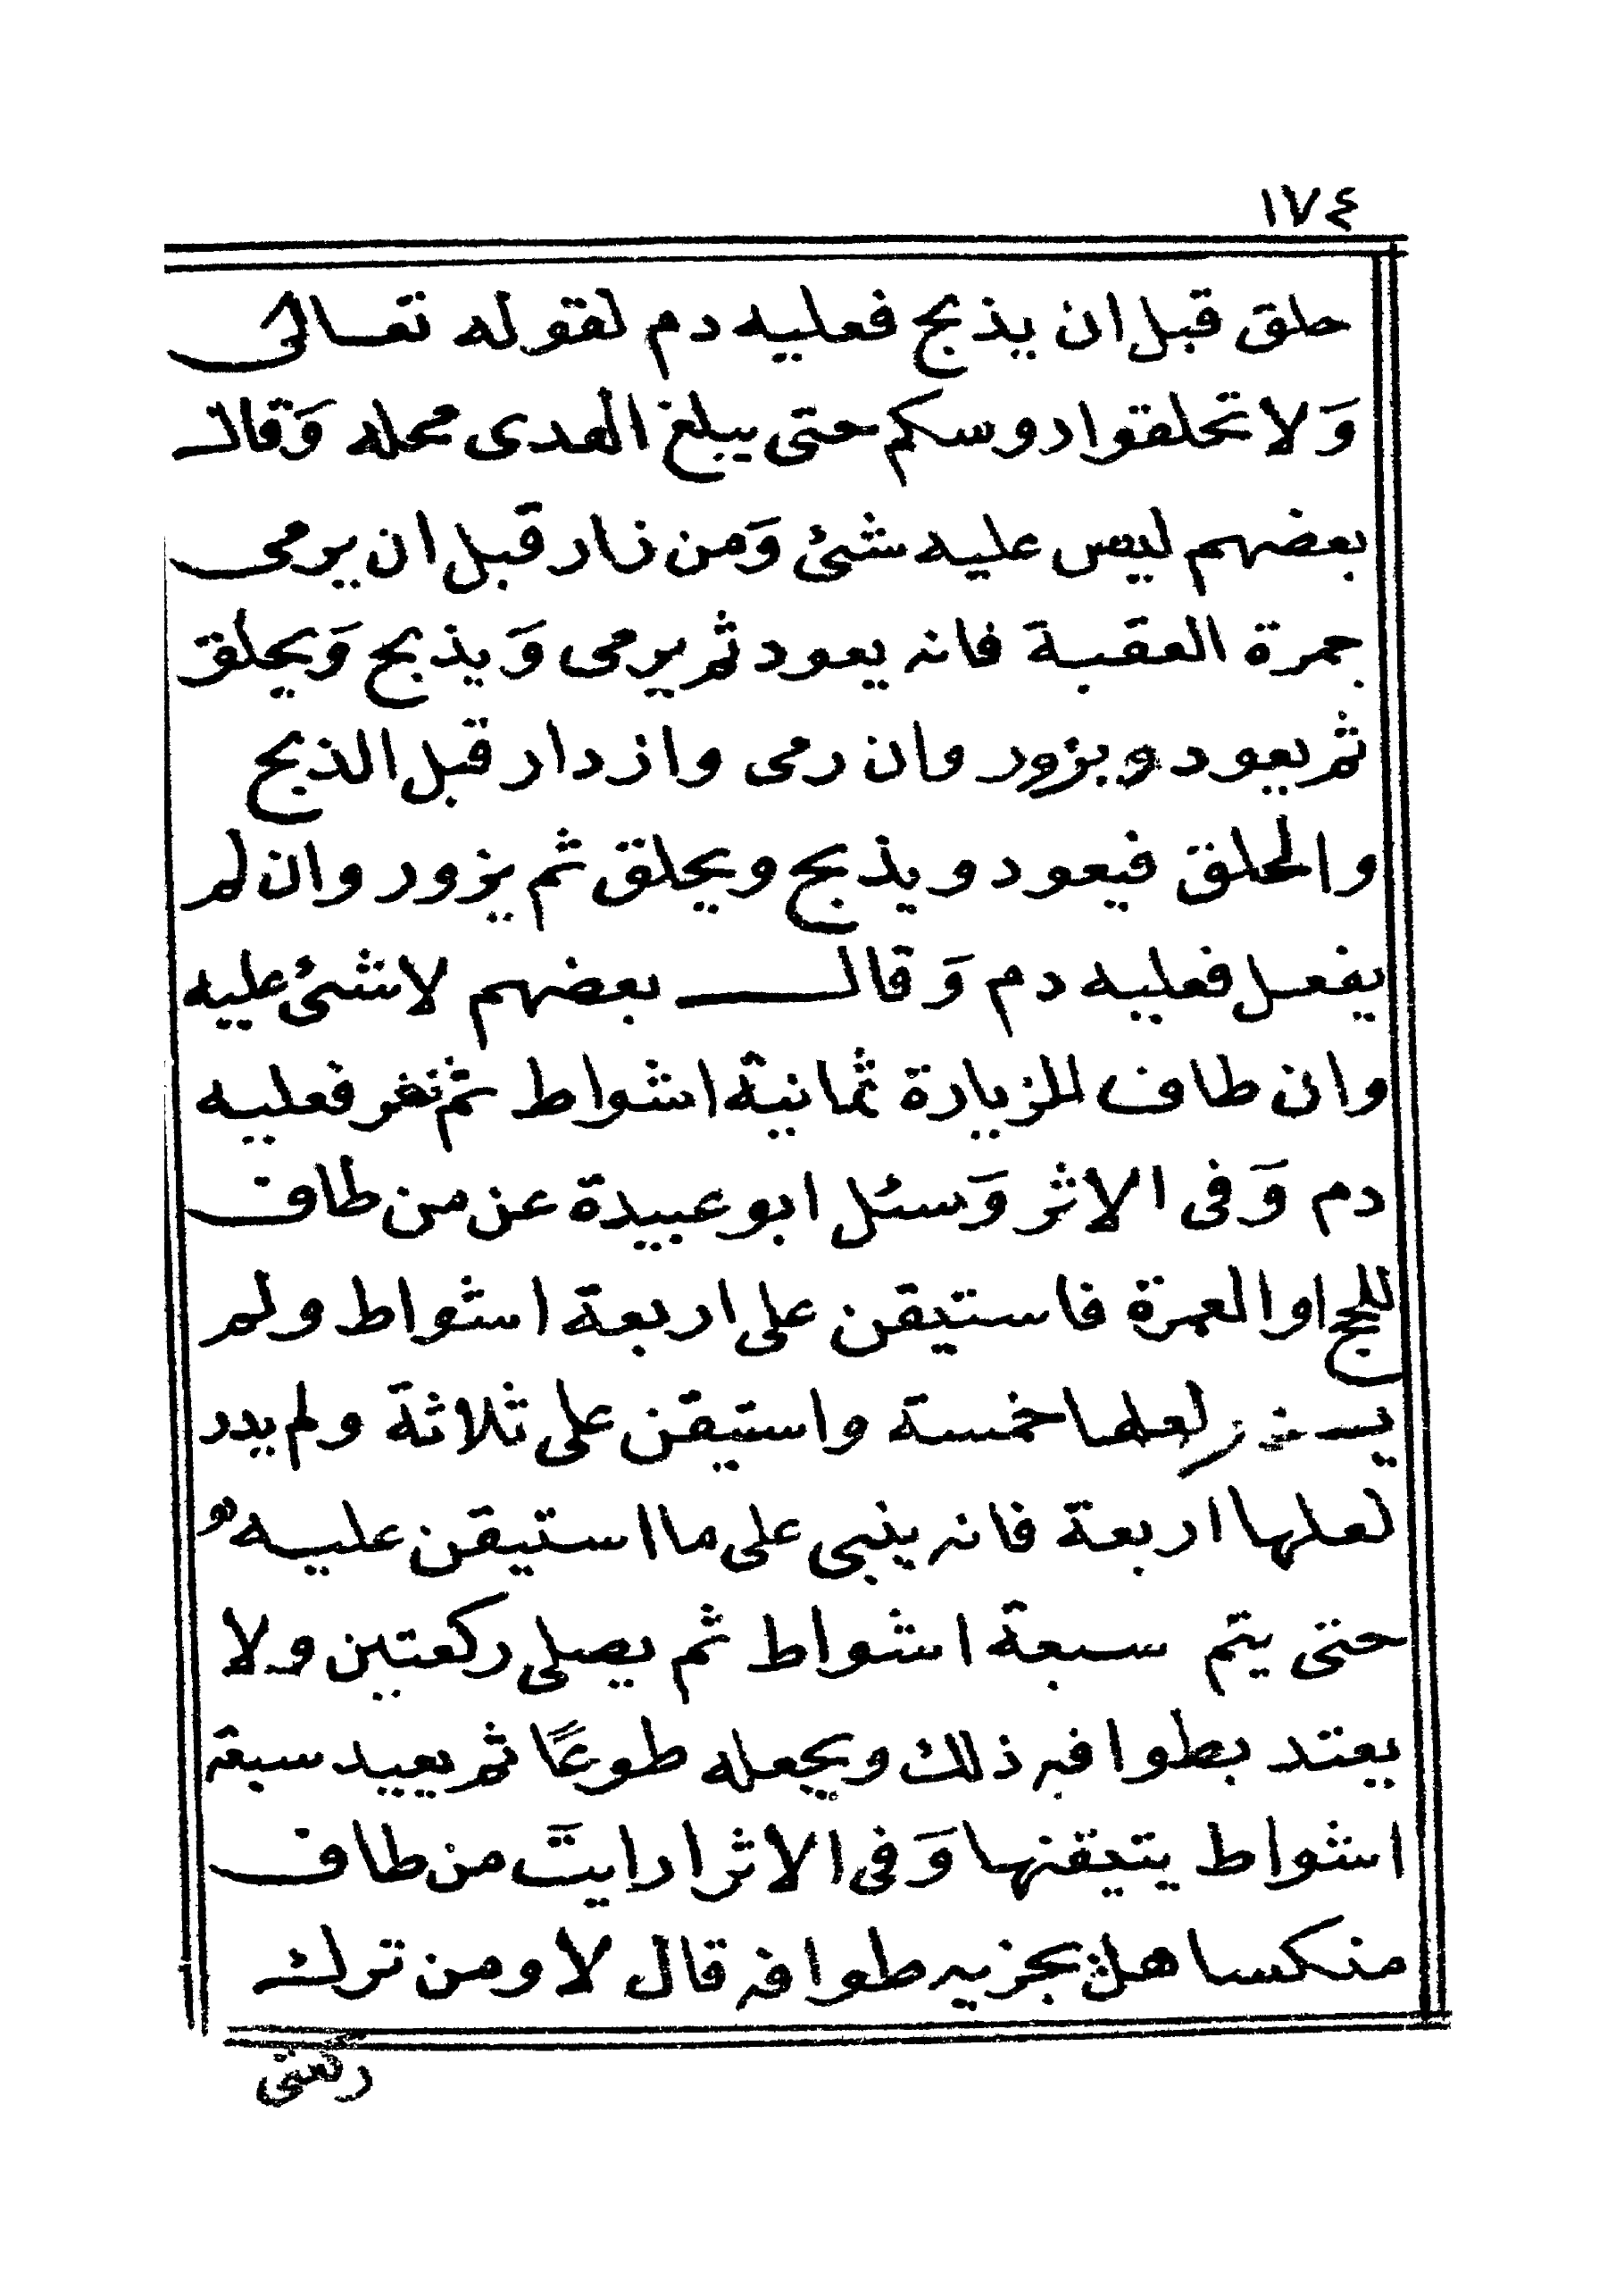 ١٧٤
حلق قبل ان يذبح فعليه دم لقوله تعالى
وَلا تحلقوا روسكم حتى يبلغ الهدى محله وَقال
بعضهم ليس عليه شئ وَمن زار قبل ان يرمى
جمرة العقبة فانه يعود ثم يرمى وَيذبح وَيحلق
ثم يعود ويزور وان رمى وازدار قبل الذبح
والحلق فيعود ويذبح ويحلق ثم يزور وان لم
يفعل فعليه دم وَقال بعضهم لاشئ عليه
وان طاف للزيارة ثمانية اشواط ثم نفر فعليه
دم وَفى الاثر وَسئل ابو عبيدة عن من طاف
للحج او العمرة فاستيقن على اربعة اشواط ولم
لعلها خمسة واستيقن على ثلاثة ولم يدر
لعلها اربعة فانه ينبى على ما استيقن عليه
حتى يتم سبعة اشواط ثم يصلى ركعتين ولا
يعتد بطوافه ذلك ويجعله طوعًا ثم يعيد سبعة
اشواط يتيقنها وَفى الاثر ارايت من طاف
منكسا هل يجزيه طوافه قال لا ومن ترك
ركعتى